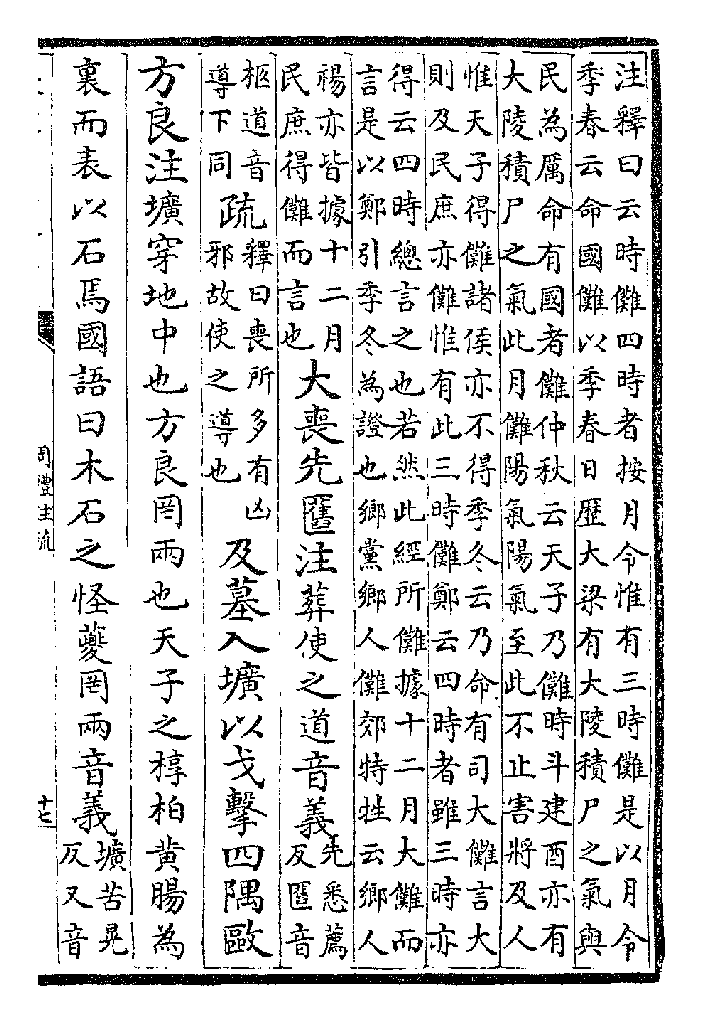 注釋曰云時儺四時者按月令惟有三時儺是以月令
季春云命國儺以季春日歷大梁有大陵積尸之氣與
民為厲命有國者儺仲秋云天子乃儺時斗建酉亦有
大陵積尸之氣此月儺陽氣陽氣至此不止害將及人
惟天子得儺諸侯亦不得季冬云乃命有司大儺言大
則及民庶亦儺惟有此三時儺鄭云四時者雖三時亦
得云四時總言之也若然此經所儺據十二月大儺而
言是以鄭引季冬為證也鄉黨鄉人儺郊特牲云鄉人
禓亦皆據十二月民庶得儺而言也大喪先匶注葬使之道音義先悉薦反匶音
柩道音導下同疏釋曰喪所多有凶邪故使之導也及墓入壙以戈擊四隅歐
方良注壙穿地中也方良罔兩也天子之椁柏黄腸為
裏而表以石焉國語曰木石之怪夔罔兩音義壙苦晃反又音
周禮注疏
十七